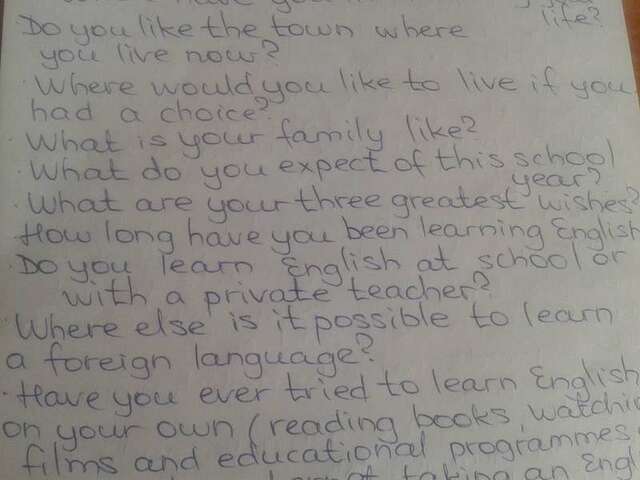 have you
life?
Do you like the town where
you live now?
· Where would you like to live if you
had a choice?
· What is your family like?
· What do you expect of this school
year?
· What are your three greatest wishes?
How long have you been learning English
· Do you learn English at school or
with a private teacher?
· Where else is it possible to learn
a foreign language?
· Have you ever tried to learn English
on your own (reading books, watchin
films and educational programmes,
taking an Engl